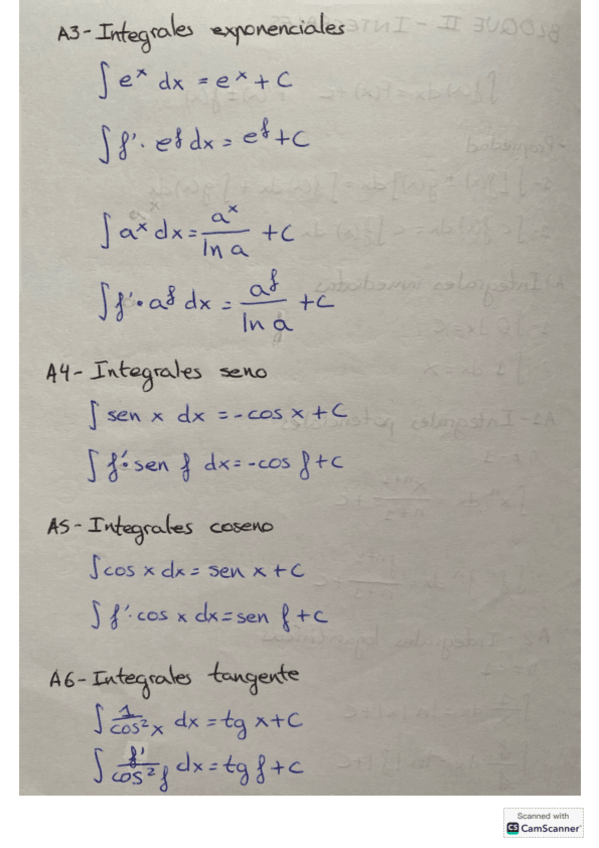 A3-Integrales exponenciales
∫ eˣ dx = eˣ + C
∫ f'· e^f dx = e^f + C
∫ aˣ dx = aˣ/ln a + C
∫ f'· a^f dx = a^f/ln a + C
A4-Integrales seno
∫ sen x dx = -cos x + C
∫ f'· sen f dx = -cos f + C
A5-Integrales coseno
∫ cos x dx = sen x + C
∫ f'· cos x dx = sen f + C
A6-Integrales tangente
∫ 1/cos²x dx = tg x + C
∫ f'/cos² f dx = tg f + C
Scanned with
CS CamScanner